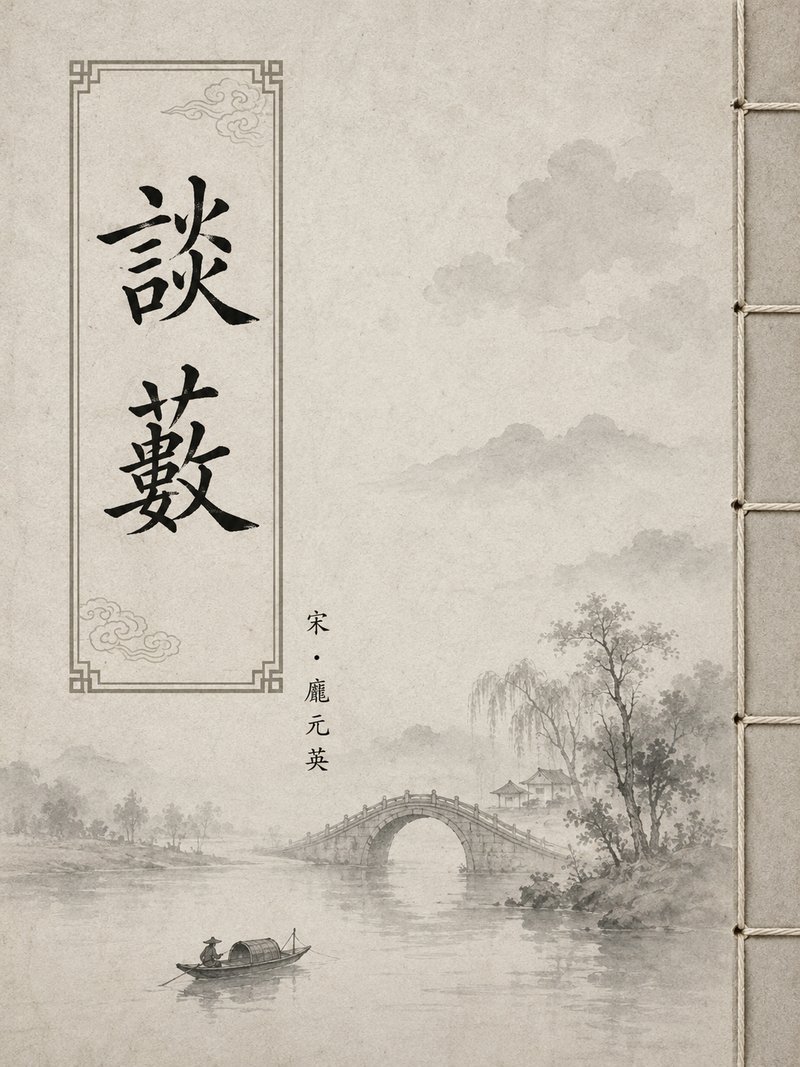 談藪
宋·龐元英